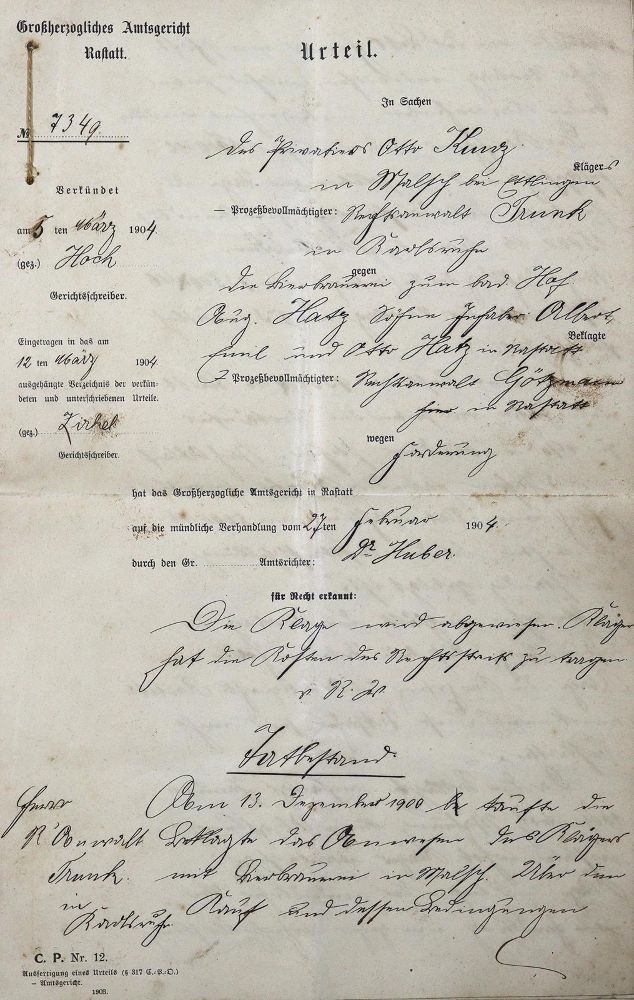 Großherzogliches Amtsgericht
Rastatt.
Urteil.
№ 7349.
In Sachen
des Privatiers Otto Kunz
in Malsch bei Ettlingen
Klägers
— Prozeßbevollmächtigter: Rechtsanwalt Trunk
in Karlsruhe
gegen
die Bierbrauerei zum bad. Hof
Aug. Hatz Söhne Inhaber Albert,
Emil und Otto Hatz in Rastatt
Beklagte
Prozeßbevollmächtigter: Rechtsanwalt Götzmann
hier in Rastatt
wegen
Forderung
Verkündet
am 5 ten März 1904.
(gez.) Hoch
Gerichtsschreiber.
Eingetragen in das am
12 ten März 1904
ausgehängte Verzeichnis der verkün-
deten und unterschriebenen Urteile.
(gez.) Zirkel
Gerichtsschreiber.
hat das Großherzogliche Amtsgericht in Rastatt
auf die mündliche Verhandlung vom 27ten Februar 1904.
durch den Gr. Amtsrichter: Dr Huber
für Recht erkannt:
Die Klage wird abgewiesen. Kläger
hat die Kosten des Rechtsstreits zu tragen
v. R. W.
Tatbestand.
Am 13. Dezember 1900 kaufte die
Beklagte das Anwesen des Klägers
mit Bierbrauerei in Malsch. Über den
Kauf und dessen Bedingungen
Herrn
R'Anwalt
Trunk.
in
Karlsruhe
C. P. Nr. 12.
Ausfertigung eines Urteils (§ 317 C.-P.-O.)
– Amtsgericht.
1903.